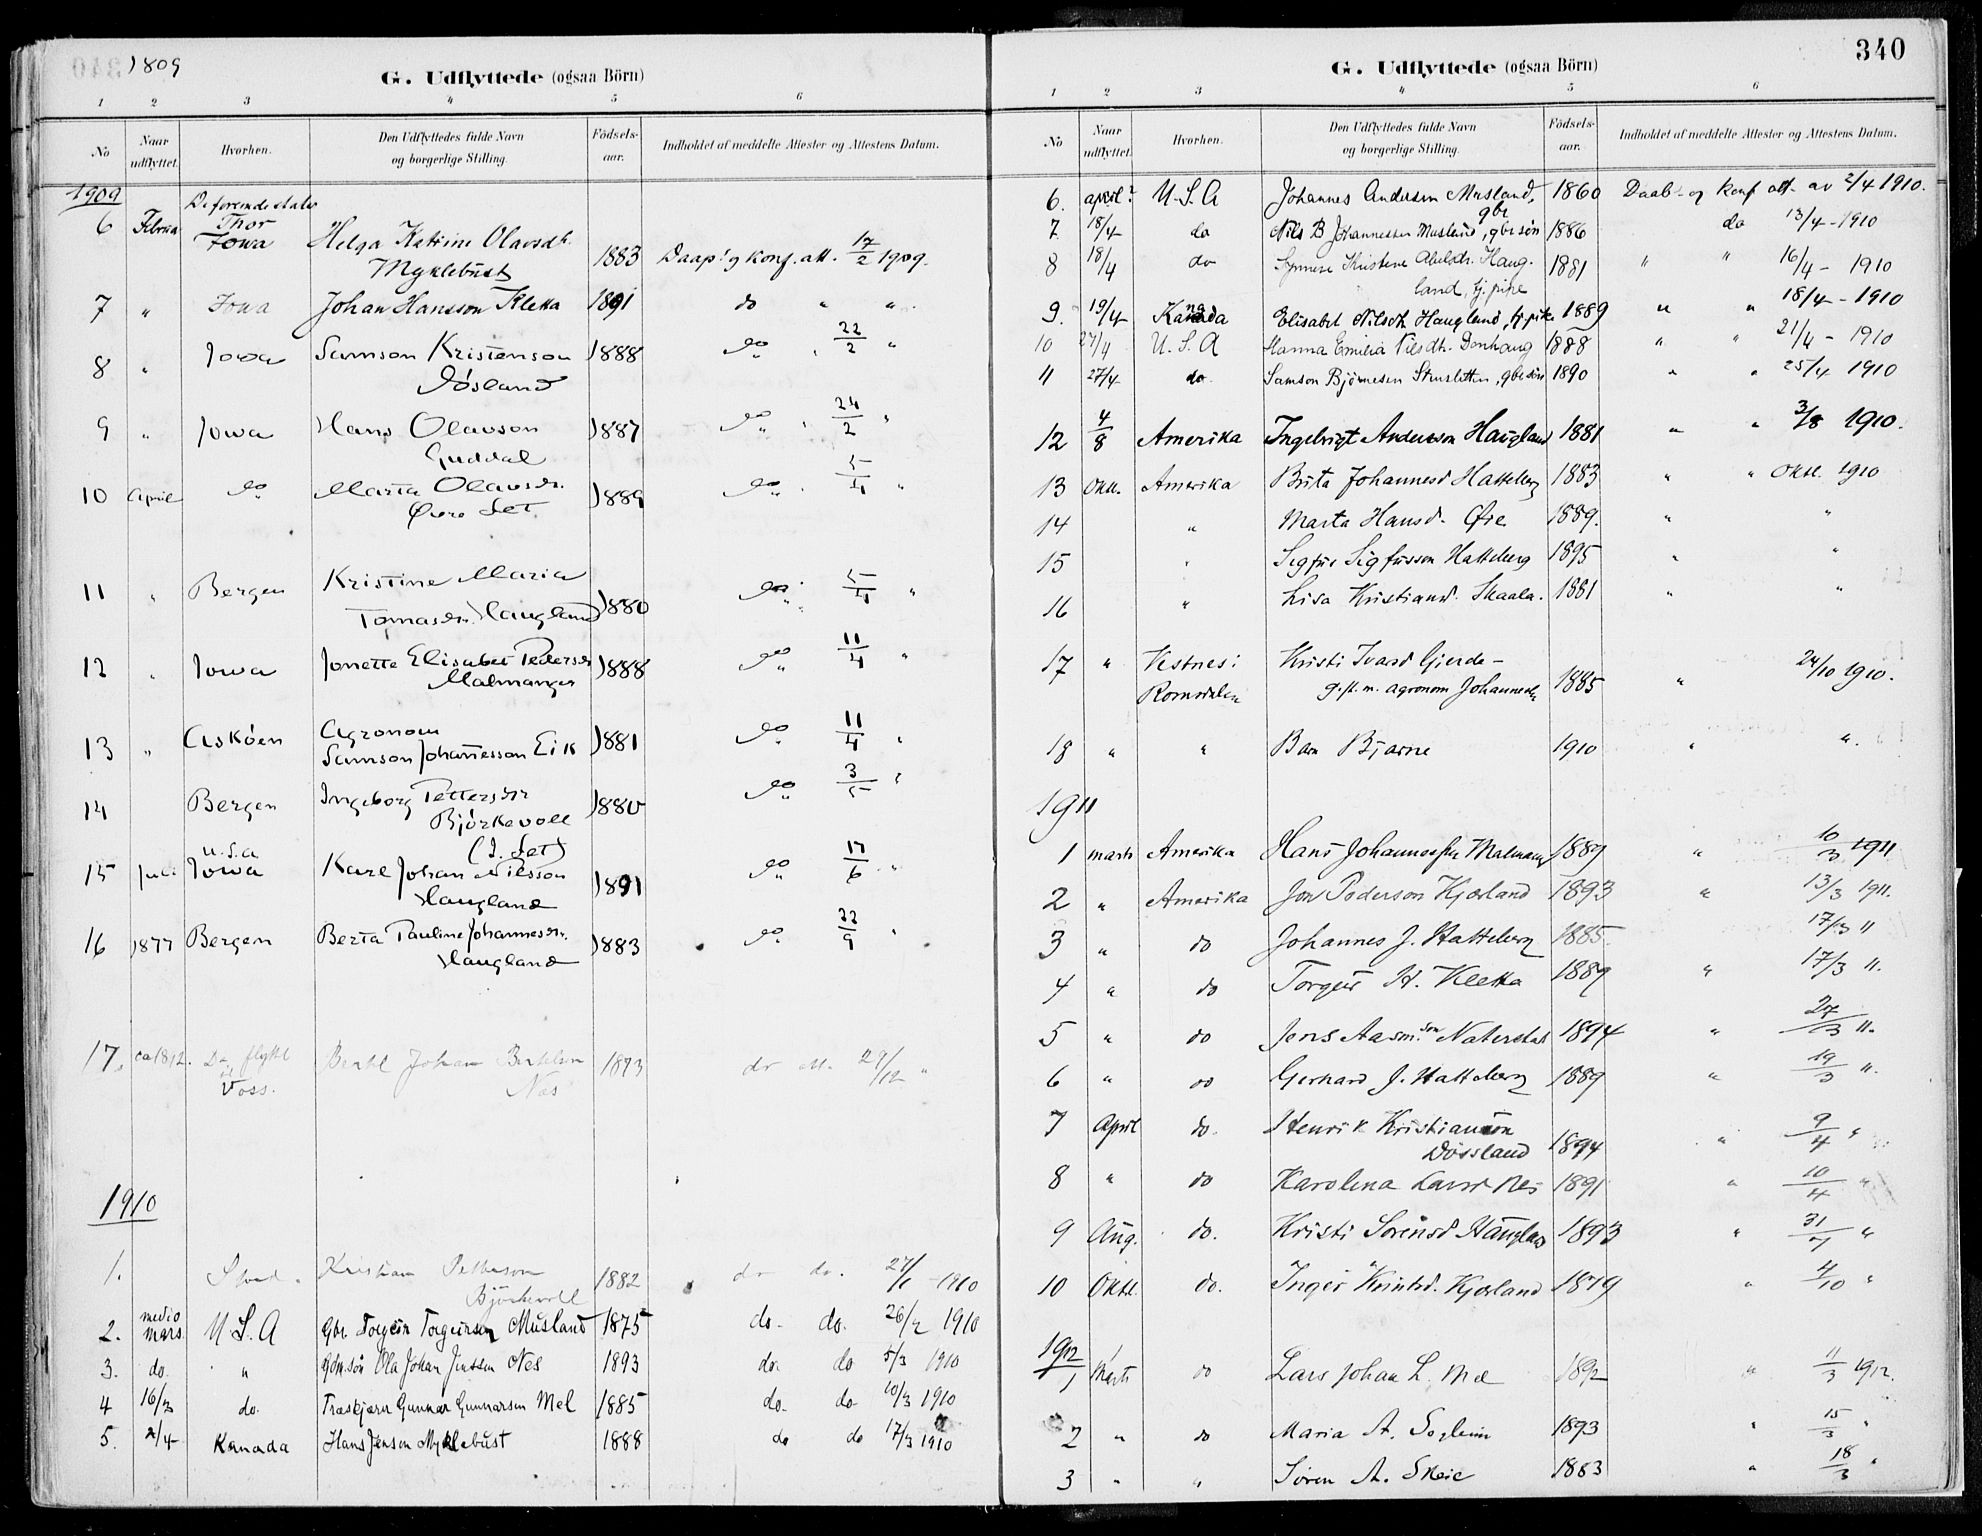 1809
G. Udflyttede (ogsaa Börn)
1 2 3 4 5 6
No Naar udflyttet. Hvorhen. Den Udflyttedes fulde Navn og borgerlige Stilling. Födsels-aar. Indholdet af meddelte Attester og Attestens Datum.
1909
De forende stater
6 Februar Thor
Iowa Helga Katrine Olavsdr.
Myklebust 1883 Daaps og konf. att. 17/2 1909.
7 " Iowa Johan Hansson Kletta 1891 do " "
8 " Iowa Samson Kristenson 1888 do " 22/2 "
Døsland
9 " Iowa Hans Olavson 1887 do " 24/2 "
Guddal
10 April do Marta Olavsdr. 1889 do " 5/4 "
Øvre Set
11 " Bergen Kristine Maria
Tomasdr. Haugland 1880 do " 5/4 "
12 " Iowa Jonette Elisabet Pedersdr 1888 do " 11/4 "
Malmanger
13 " Askøen Agronom
Samson Johannesson Eik 1881 do " 11/4 "
14 Bergen Ingeborg Pettersdr 1880 do " 3/5 "
Björkevoll
(I. Set)
15 Juli U.S.A
Iowa Karl Johan Nilsson 1891 do " 17/6 "
Haugland
16 1877 Bergen Berta Pauline Johannesdr. 1883 do 22/9 "
Haugland
17. ca 1812. flytt
Voss. Bertel Johan Bertelsen 1873 do att. 29/12 "
Nes
1910
1. Kristian Petterson 1882 do do. 27/1 - 1910
Björkevoll
2. medio
mars. U.S.A Gbr. Torgeir Torgeirsen Musland 1875 do. do. 26/2 1910
3. do. " Ola Johan Jenssen Nes 1893 do. do 5/3 1910
4 16/3 do. Gunnar Gunnarsen Mel 1885 do. do 10/3 1910
5. 2/4 Kanada Hans Jensen Myklebust 1888 do do 17/3 1910
340
G. Udflyttede (ogsaa Börn)
1 2 3 4 5 6
No Naar udflyttet. Hvorhen. Den Udflyttedes fulde Navn og borgerlige Stilling. Födsels-aar. Indholdet af meddelte Attester og Attestens Datum.
6. april U.S.A Johannes Andersen Musland, 1860 Daab- og konf att. av 2/4 1910.
gbr
7. 18/4 do Nils B Johannessen Musland, gbr søn 1886 do 13/4 - 1910
8 18/4 do Synneve Kristine Abelsdr. Haug- 1881 " " 16/4 - 1910
land, tj. pike
9. 19/4 Kanada Elisabet Nilsdtr Haugland, tj. pike 1889 " " 18/4 - 1910
10 27/4 U.S.A Hanna Emilia Nilsdtr. Donhaug 1888 " " 21/4 - 1910
11 27/4 do. Samson Björnesen Struslitten, gbr søn 1890 " " 25/4 1910
12 4/8 Amerika Ingebrigt Andersson Haugland 1881 " " 3/8 1910.
13 Okt. Amerika Brita Johannesd Hatteberg 1883 " " Okt. 1910
14 " Marta Hansd. Øie 1889. " "
15 " Sigfus Sigfusson Hatteberg 1895 " "
16 " Lisa Kristiansd. Skaala. 1881 " "
17 " Vestnes i
Romsdalen Kristi Ivarsd Gjerde -
g.ft. m. agronom Johannesdr 1885 " 24/10 1910.
18 " " Barn Bjarne 1910 " "
1911
1 marts Amerika Hans Johannesson Malmanger 1889 " 10/3 1911
2 " Amerika Jon Pederson Kjærland 1893 " 13/3 1911.
3 " do Johannes J. Hatteberg 1885 17/3 11
4 " do Torgeir H. Kletta 1889 " 17/3 11.
5 " do Jens Aasm.son Naterstad 1894 " 27/3 11.
6 " do Gerhard J. Hatteberg 1889 " 19/3 11.
7 April do. Henrik Kristianson
Døssland 1894 " 9/4 "
8 " do Karolina Larsd Nes 1891 " 10/4 "
9 Aug. do. Kristi Sørensd Haugland 1893 " 31/7 "
10 Okt. do. Inger Kristd. Kjærland 1879 " 4/10 "
1912
1 Marts do Lars Johan L. Mel 1892 " 11/3 1912.
2 " do Maria A. Soglein 1893 " 15/3 "
3 " " Søren A. Skeie 1883 " 18/3 "